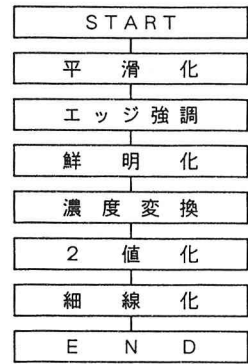 START
平滑化
エッジ強調
鮮明化
濃度変換
2値化
細線化
END